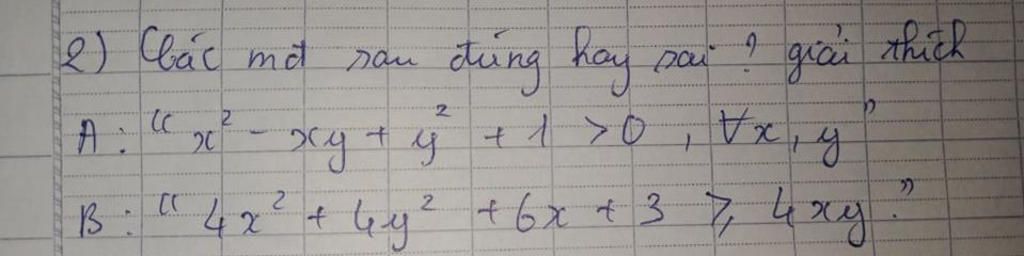 2) Các mđ sau đúng hay sai ? giải thích
A : " x² - xy + y² + 1 > 0 , ∀x, y "
B : " 4x² + 4y² + 6x + 3 ⩾ 4xy . "